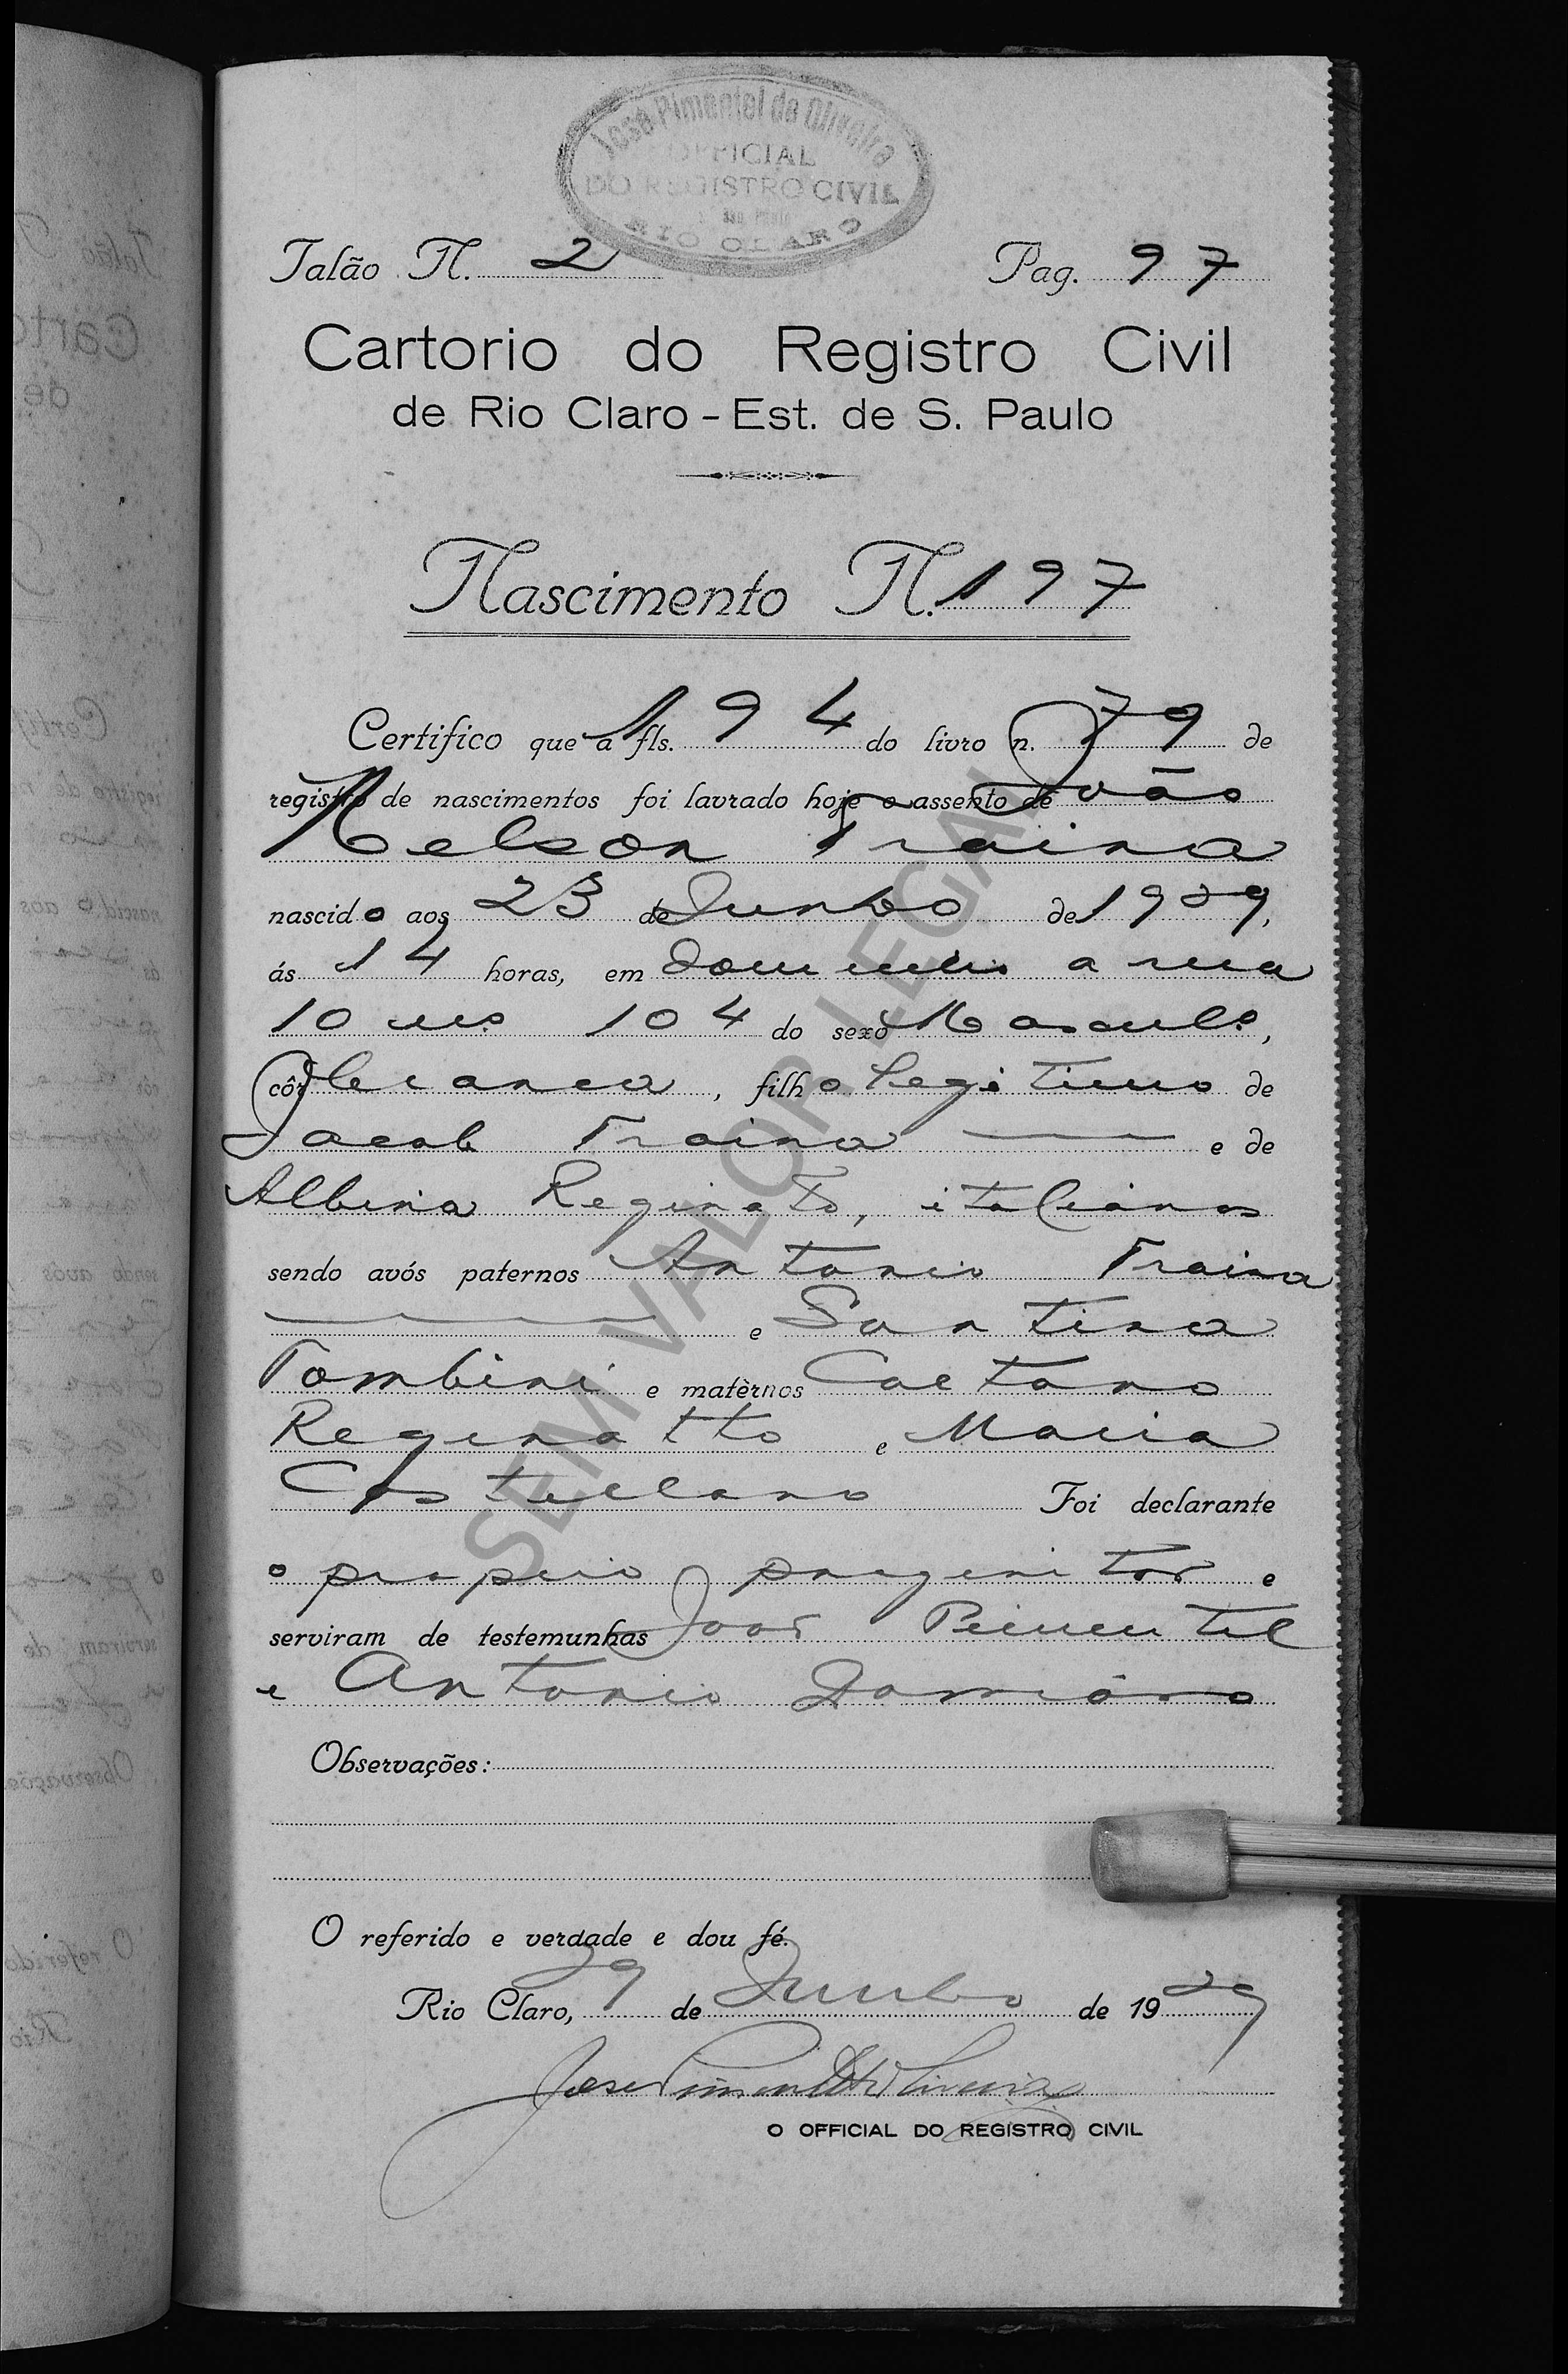 José Pimentel de Oliveira
OFFICIAL
DO REGISTRO CIVIL
São Paulo
RIO CLARO
Talão N. 2 Pag. 97
Cartorio do Registro Civil
de Rio Claro - Est. de S. Paulo
Nascimento N. 197
Certifico que a fls. 194 do livro n. 79 de
registro de nascimentos foi lavrado hoje o assento de João
Nelson Traina
nascido aos 23 de Junho de 1929,
ás 14 horas, em domicilio a rua
10 no. 104 do sexo Masculo,
côr branca, filho legitimo de
Jacob Traina e de
Albina Reginato, italianos
sendo avós paternos Antonio Traina
e Santina
Tombini e matèrnos Caetano
Reginatto e Maria
Foi declarante
o proprio progenitor e
serviram de testemunhas João Pimentel
e Antonio Damiano
Observações:
O referido e verdade e dou fé.
Rio Claro, 29 de Junho de 1929
José Pimentel de Oliveira
O OFFICIAL DO REGISTRO CIVIL
SEM VALOR LEGAL